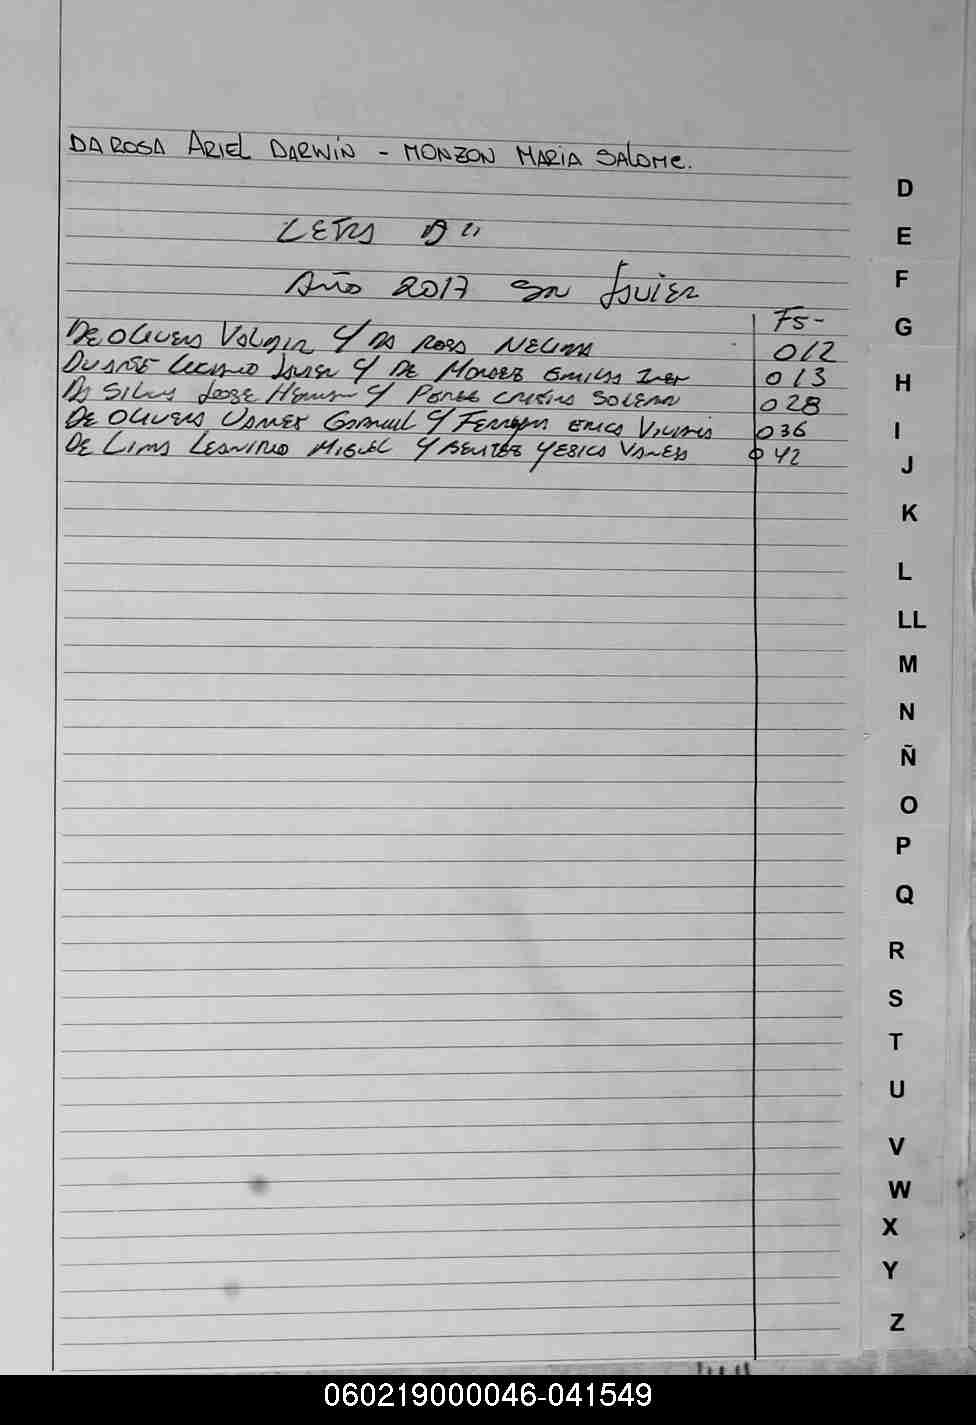 DA ROSA ARIEL DARWIN - MONZON MARIA SALOME.
LETRA D"
Año 2017 San Javier
Fs-
De Olivera Valmir y Da Rosa Nelida 012
Duarte Luciano Javier y De Moraes Emilia Ines 013
Da Silva Jorge Hernan y Perez Cristina Soledad 028
De Olivera Gabriel y Ferreyra Erica Viviana 036
De Lima Leandro Miguel y Benitez Yesica Vanesa 042
D
E
F
G
H
I
J
K
L
LL
M
N
Ñ
O
P
Q
R
S
T
U
V
W
X
Y
Z
060219000046-041549